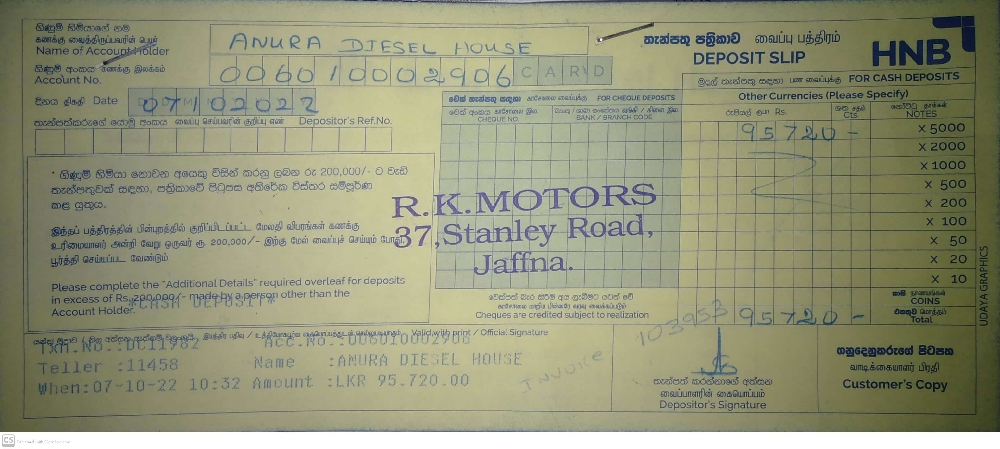 ගිණුම් හිමියාගේ නම
கணக்கு வைத்திருப்பவரின் பெயர்
Name of Account Holder
ANURA DIESEL HOUSE
ගිණුම් අංකය கணக்கு இலக்கம்
Account No.
006010002906 CARD
දිනය திகதி Date 07 02022
තැන්පත්කරුගේ යොමු අංකය வைப்பு செய்பவரின் குறிப்பு எண் Depositor's Ref.No.
තැන්පතු පත්‍රිකාව வைப்பு பத்திரம்
DEPOSIT SLIP
HNB
මුදල් තැන්පතු සඳහා பண வைப்புக்கு FOR CASH DEPOSITS
Other Currencies (Please Specify)
රුපියල් ரூபா Rs.
Cts.
NOTES
95720 -
X 5000
X 2000
X 1000
X 500
X 200
X 100
X 50
X 20
X 10
COINS
Total
95720 -
චෙක් තැන්පතු සඳහා காசோலை வைப்புக்கு FOR CHEQUE DEPOSITS
CHEQUE NO.
BANK / BRANCH CODE
* ගිණුම් හිමියා නොවන අයෙකු විසින් කරනු ලබන රු 200,000/- ට වැඩි
තැන්පතුවක් සඳහා, පත්‍රිකාවේ පිටුපස අතිරේක විස්තර සම්පූර්ණ
කළ යුතුය.
இந்தப் பத்திரத்தின் பின்புறத்தில் குறிப்பிடப்பட்ட மேலதி விபரங்கள் கணக்கு
உரிமையாளர் அன்றி வேறு ஒருவர் ரூ 200,000/- இற்கு மேல் வைப்புச் செய்யும் போது
பூர்த்தி செய்யப்பட வேண்டும்
Please complete the "Additional Details" required overleaf for deposits
in excess of Rs. 200,000/- made by a person other than the
Account Holder.
*CASH DEPOSIT*
R.K.MOTORS
37,Stanley Road,
Jaffna.
Cheques are credited subject to realization
Valid with print / Official Signature
Txn.No.:DC11982 Acc.No.:006010002906
Teller :11458 Name :ANURA DIESEL HOUSE
When:07-10-22 10:32 Amount :LKR 95.720.00
Invoice 103953
තැන්පත් කරන්නාගේ අත්සන
வைப்பாளரின் கையொப்பம்
Depositor's Signature
ගනුදෙනුකරුගේ පිටපත
வாடிக்கையாளர் பிரதி
Customer's Copy
UDAYA GRAPHICS
CS